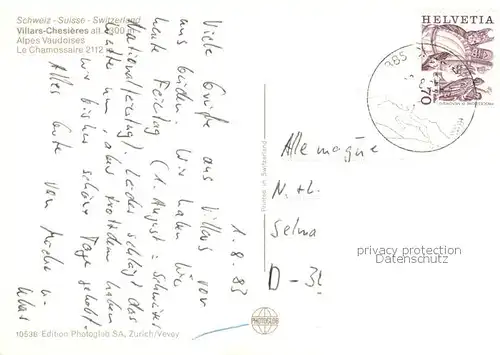 Schweiz - Suisse - Switzerland
Villars-Chesières alt. 1300
Alpes Vaudoises
Le Chamossaire 2112
HELVETIA
70
1.8.83
Viele Grüße aus Villars von
uns beiden. Wir haben hier
heute Feiertag (1. August = Schweizer
Nationalfeiertag). Leider schlägt das
Wetter um, aber trotzdem haben
wir bisher schöne Tage gehabt.
Alles Gute von
Allemagne
N. + L.
Selma
D - 3
privacy protection
Datenschutz
Printed in Switzerland
PHOTOGLOB
10536 Edition Photoglob SA, Zurich/Vevey